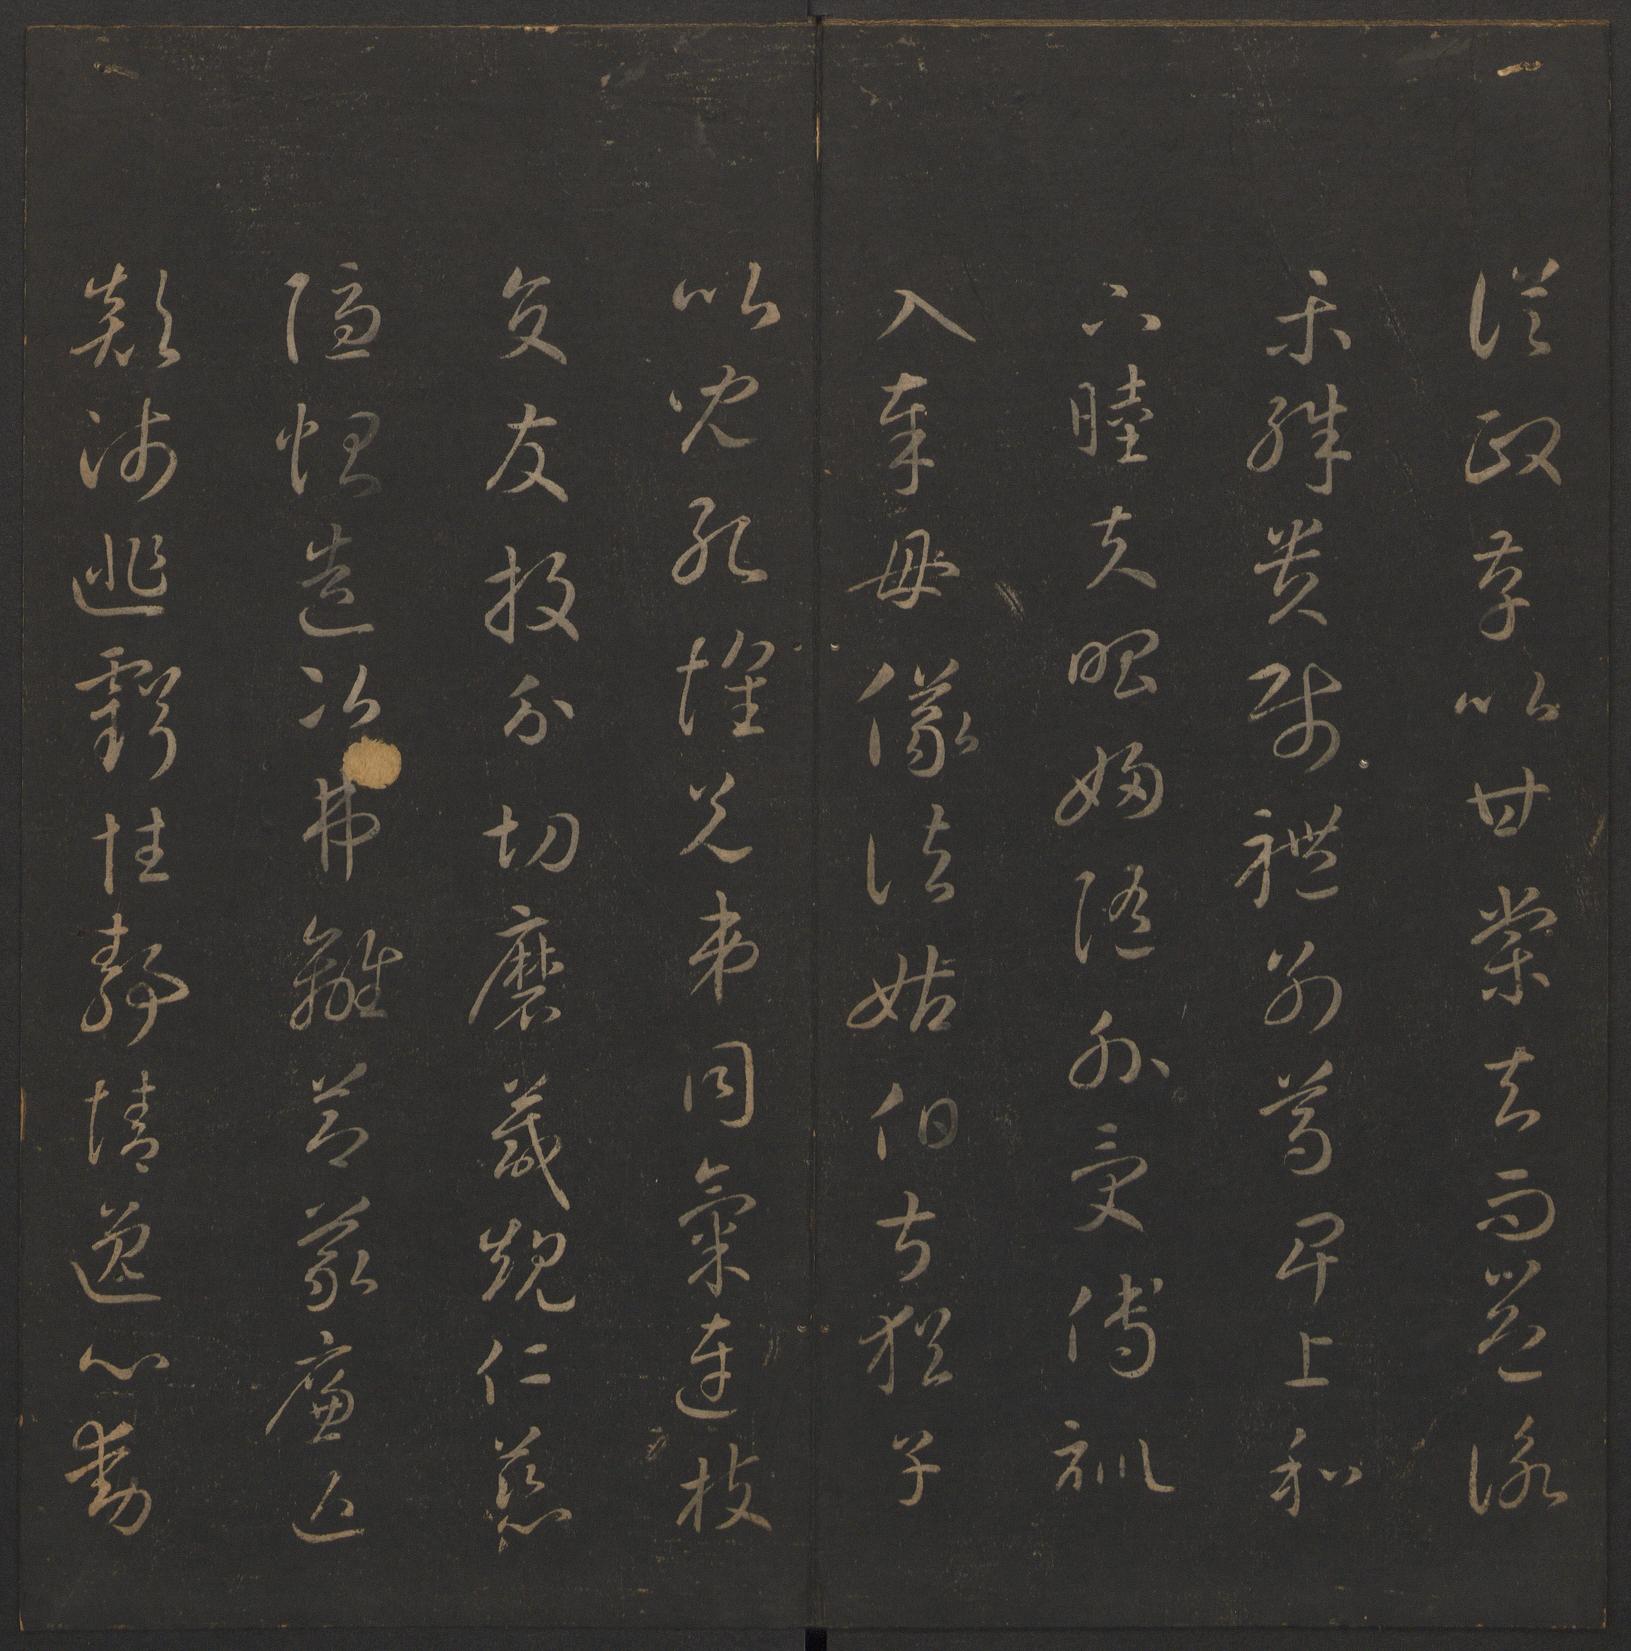 從政存以甘棠去而益詠
樂殊貴賤禮別尊卑上和
下睦夫唱婦隨外受傅訓
入奉母儀諸姑伯叔猶子
比兒孔懷兄弟同氣連枝
交友投分切磨箴規仁慈
隱惻造次弗離節義廉退
顛沛匪虧性靜情逸心動